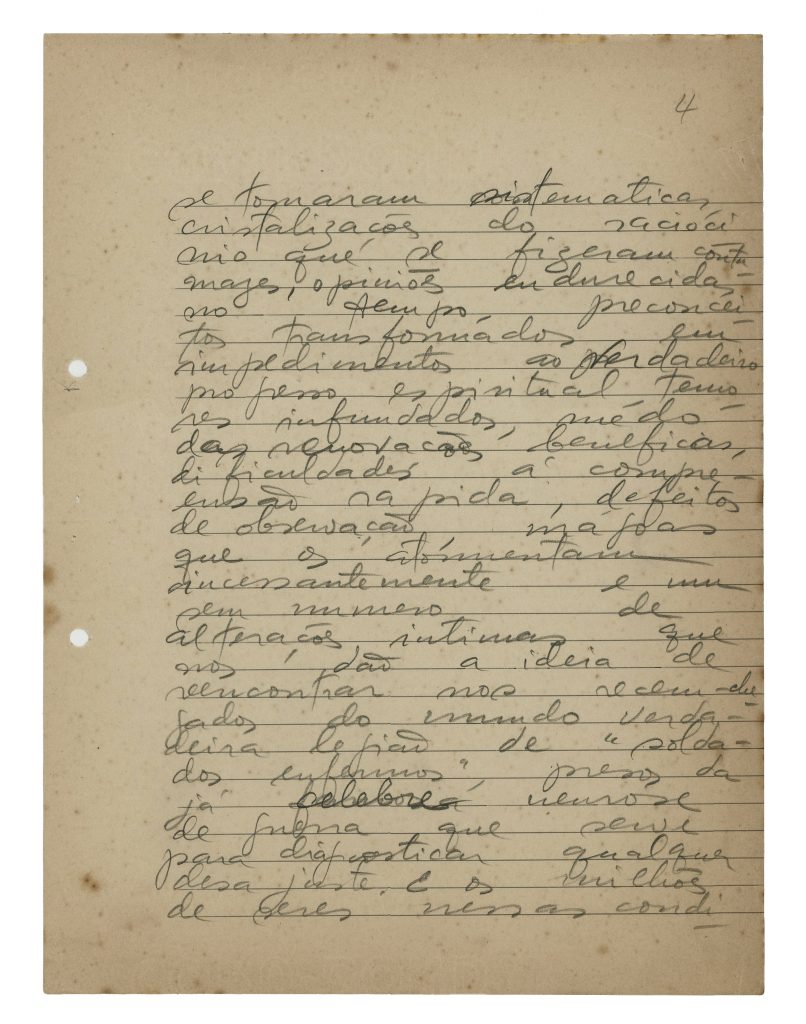 4
se tornaram sistematicas,
cristalizações do raciocí
nio que se fizeram contu
mazes, opiniões endurecidas
no tempo, preconcei
tos transformados em
impedimentos ao verdadeiro
progresso espiritual temo
res infundados, mêdo
das renovações beneficas,
dificuldades á compre-
ensão rapida, defeitos
de observação, mágoas
que os atormentam
incessantemente e um
sem numero de
alterações intimas que
nos dão a ideia de
reencontrar nos recem-che
gados do mundo verda-
deira legião de "solda-
dos enfermos", presos da
já neurose
de guerra que serve
para diagnosticar qualquer
desajuste. E os milhões
de seres nessas condi